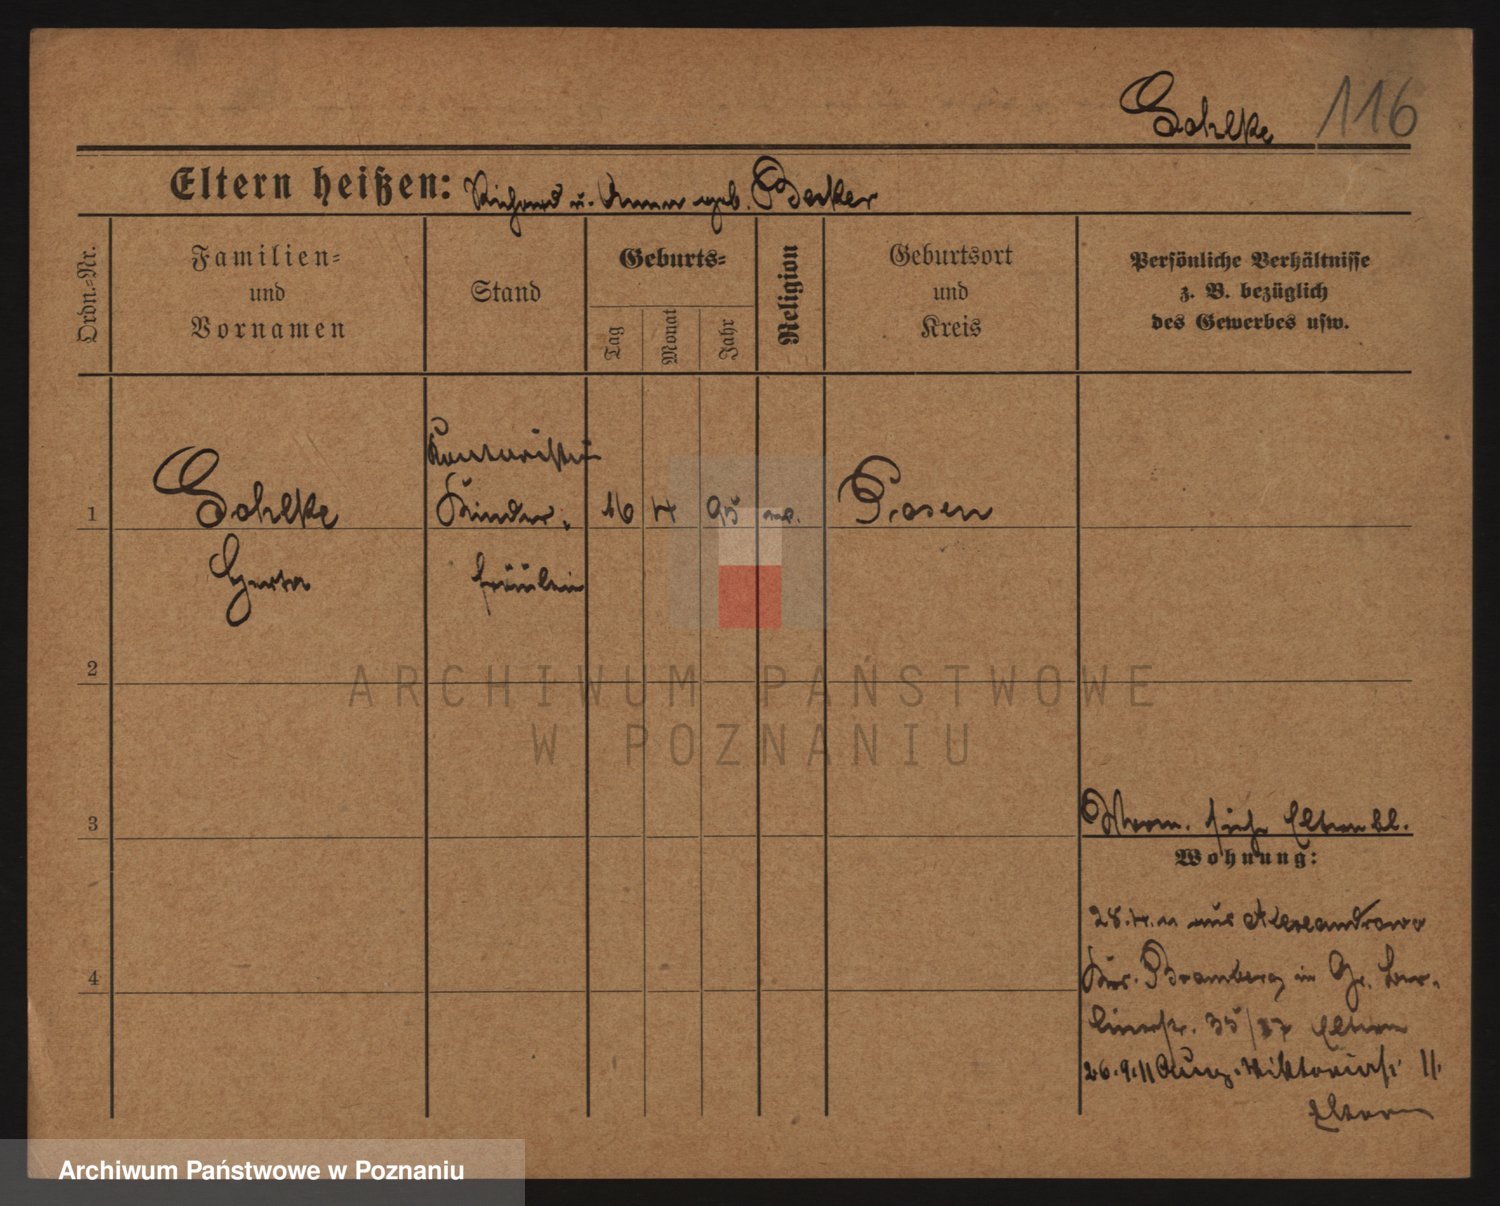 Gohlke 116
Eltern heißen: Richard u. Anna geb. Becker
Ordn.-Nr.
Familien-
und
Vornamen
Stand
Geburts-
Tag
Monat
Jahr
Religion
Geburtsort
und
Kreis
Persönliche Verhältnisse
z. B. bezüglich
des Gewerbes usw.
Kontoristin
1 Gohlke Kinder- 16 4 95 Posen
Herta fräulein
2
ARCHIWUM PAŃSTWOWE
W POZNANIU
3
siehe Elternbl.
Wohnung:
28.4.11 aus Alexandrowo
4
Krs. Bromberg in Gr. Ber-
linerstr. 35/37 Eltern
26.9.11 Viktoriastr. 11.
Eltern
Archiwum Państwowe w Poznaniu